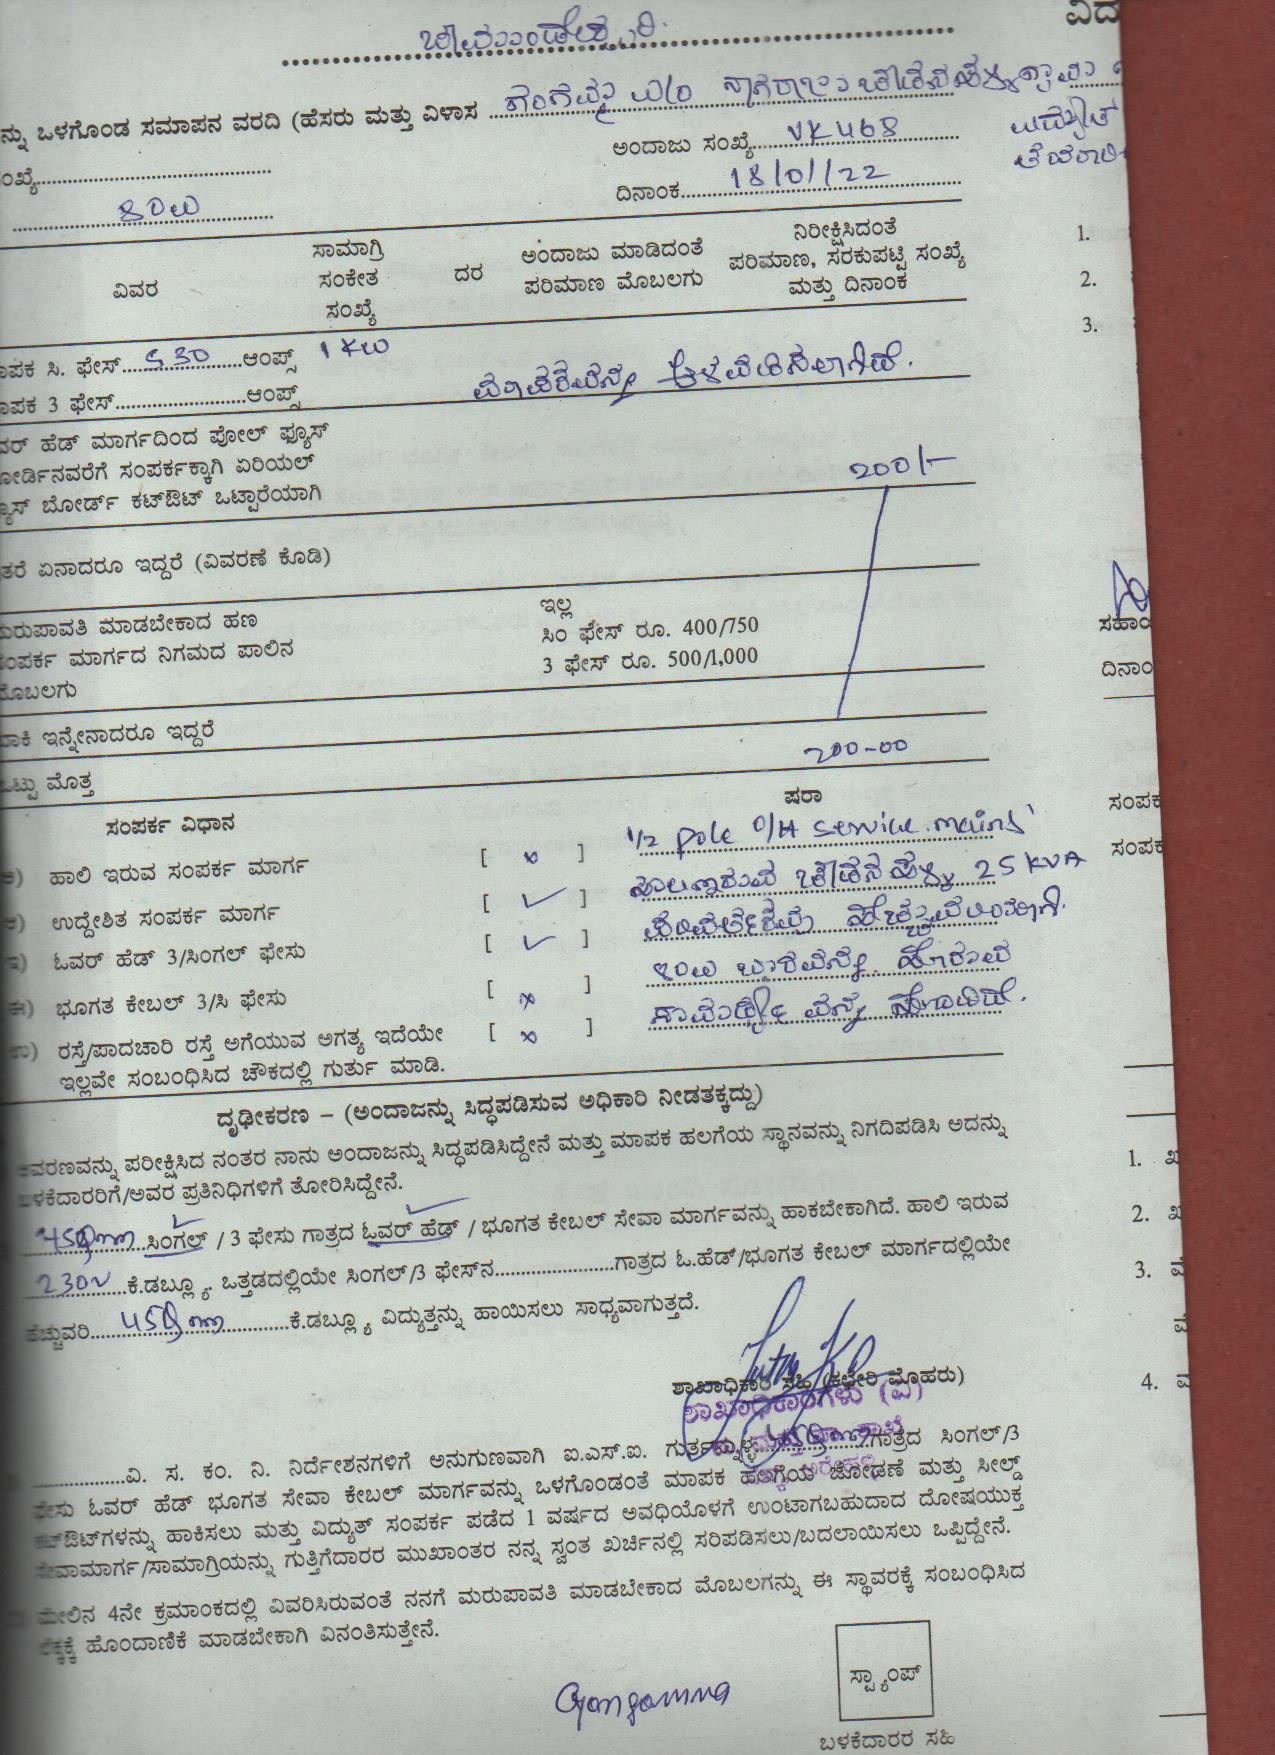 ವಿದ
ನ್ನು ಒಳಗೊಂಡ ಸಮಾಪನ ವರದಿ (ಹೆಸರು ಮತ್ತು ವಿಳಾಸ ಗಂಗಮ್ಮ W/O ನಾಗರಾಜು
ಅಂದಾಜು ಸಂಖ್ಯೆ VK468
ಂಖ್ಯೆ
ದಿನಾಂಕ 18/01/22
ವಿವರ
ಸಾಮಾಗ್ರಿ ಸಂಕೇತ ಸಂಖ್ಯೆ
ದರ
ಅಂದಾಜು ಮಾಡಿದಂತೆ ಪರಿಮಾಣ ಮೊಬಲಗು
ನಿರೀಕ್ಷಿಸಿದಂತೆ ಪರಿಮಾಣ, ಸರಕುಪಟ್ಟಿ ಸಂಖ್ಯೆ ಮತ್ತು ದಿನಾಂಕ
1.
2.
3.
ಾಪಕ ಸಿ. ಫೇಸ್ 5-30 ಆಂಪ್ಸ್ 1 KW
ಾಪಕ 3 ಫೇಸ್ ಆಂಪ್ಸ್
ಮಾಪಕವನ್ನು ಅಳವಡಿಸಲಾಗಿದೆ.
ವರ್ ಹೆಡ್ ಮಾರ್ಗದಿಂದ ಪೋಲ್ ಫ್ಯೂಸ್
ೋರ್ಡಿನವರೆಗೆ ಸಂಪರ್ಕಕ್ಕಾಗಿ ಏರಿಯಲ್
್ಯೂಸ್ ಬೋರ್ಡ್ ಕಟ್‌ಔಟ್ ಒಟ್ಟಾರೆಯಾಗಿ
200/-
ತರೆ ಏನಾದರೂ ಇದ್ದರೆ (ವಿವರಣೆ ಕೊಡಿ)
ಮರುಪಾವತಿ ಮಾಡಬೇಕಾದ ಹಣ
ಸಂಪರ್ಕ ಮಾರ್ಗದ ನಿಗಮದ ಪಾಲಿನ
ಮೊಬಲಗು
ಇಲ್ಲ
ಸಿಂ ಫೇಸ್ ರೂ. 400/750
3 ಫೇಸ್ ರೂ. 500/1,000
ಸಹಾಯ
ದಿನಾಂ
ಬಾಕಿ ಇನ್ನೇನಾದರೂ ಇದ್ದರೆ
ಒಟ್ಟು ಮೊತ್ತ
200-00
ಸಂಪರ್ಕ ವಿಧಾನ
ಷರಾ
ಸಂಪರ್ಕ
ಅ) ಹಾಲಿ ಇರುವ ಸಂಪರ್ಕ ಮಾರ್ಗ [ × ] 1/2 pole O/H service mains
ಆ) ಉದ್ದೇಶಿತ ಸಂಪರ್ಕ ಮಾರ್ಗ [ ✓ ] 25 KVA
ಇ) ಓವರ್ ಹೆಡ್ 3/ಸಿಂಗಲ್ ಫೇಸು [ ✓ ]
ಈ) ಭೂಗತ ಕೇಬಲ್ 3/ಸಿ ಫೇಸು [ × ]
ಉ) ರಸ್ತೆ/ಪಾದಚಾರಿ ರಸ್ತೆ ಅಗೆಯುವ ಅಗತ್ಯ ಇದೆಯೇ [ × ]
ಇಲ್ಲವೇ ಸಂಬಂಧಿಸಿದ ಚೌಕದಲ್ಲಿ ಗುರ್ತು ಮಾಡಿ.
ದೃಢೀಕರಣ – (ಅಂದಾಜನ್ನು ಸಿದ್ಧಪಡಿಸುವ ಅಧಿಕಾರಿ ನೀಡತಕ್ಕದ್ದು)
ಆವರಣವನ್ನು ಪರೀಕ್ಷಿಸಿದ ನಂತರ ನಾನು ಅಂದಾಜನ್ನು ಸಿದ್ಧಪಡಿಸಿದ್ದೇನೆ ಮತ್ತು ಮಾಪಕ ಹಲಗೆಯ ಸ್ಥಾನವನ್ನು ನಿಗದಿಪಡಿಸಿ ಅದನ್ನು
ಬಳಕೆದಾರರಿಗೆ/ಅವರ ಪ್ರತಿನಿಧಿಗಳಿಗೆ ತೋರಿಸಿದ್ದೇನೆ.
45qmm ಸಿಂಗಲ್ / 3 ಫೇಸು ಗಾತ್ರದ ಓವರ್ ಹೆಡ್ / ಭೂಗತ ಕೇಬಲ್ ಸೇವಾ ಮಾರ್ಗವನ್ನು ಹಾಕಬೇಕಾಗಿದೆ. ಹಾಲಿ ಇರುವ
230v ಕೆ.ಡಬ್ಲ್ಯೂ. ಒತ್ತಡದಲ್ಲಿಯೇ ಸಿಂಗಲ್/3 ಫೇಸ್‌ನ ಗಾತ್ರದ ಓ.ಹೆಡ್/ಭೂಗತ ಕೇಬಲ್ ಮಾರ್ಗದಲ್ಲಿಯೇ
ಹೆಚ್ಚುವರಿ 45qmm ಕೆ.ಡಬ್ಲ್ಯೂ ವಿದ್ಯುತ್ತನ್ನು ಹಾಯಿಸಲು ಸಾಧ್ಯವಾಗುತ್ತದೆ.
1.
2.
3.
4.
ಶಾಖಾಧಿಕಾರಿ ಸಹಿ (ಕಛೇರಿ ಮೊಹರು)
ಶಾಖಾಧಿಕಾರಿಗಳು (ವಿ)
ವಿ. ಸ. ಕಂ. ನಿ. ನಿರ್ದೇಶನಗಳಿಗೆ ಅನುಗುಣವಾಗಿ ಐ.ಎಸ್.ಐ. ಗುರ್ತುಳ್ಳ 45qmm ಗಾತ್ರದ ಸಿಂಗಲ್/3
ಫೇಸು ಓವರ್ ಹೆಡ್ ಭೂಗತ ಸೇವಾ ಕೇಬಲ್ ಮಾರ್ಗವನ್ನು ಒಳಗೊಂಡಂತೆ ಮಾಪಕ ಹಲಗೆಯ ಜೋಡಣೆ ಮತ್ತು ಸೀಲ್ಡ್
ಕಟ್‌ಔಟ್‌ಗಳನ್ನು ಹಾಕಿಸಲು ಮತ್ತು ವಿದ್ಯುತ್ ಸಂಪರ್ಕ ಪಡೆದ 1 ವರ್ಷದ ಅವಧಿಯೊಳಗೆ ಉಂಟಾಗಬಹುದಾದ ದೋಷಯುಕ್ತ
ಸೇವಾಮಾರ್ಗ/ಸಾಮಾಗ್ರಿಯನ್ನು ಗುತ್ತಿಗೆದಾರರ ಮುಖಾಂತರ ನನ್ನ ಸ್ವಂತ ಖರ್ಚಿನಲ್ಲಿ ಸರಿಪಡಿಸಲು/ಬದಲಾಯಿಸಲು ಒಪ್ಪಿದ್ದೇನೆ.
ಮೇಲಿನ 4ನೇ ಕ್ರಮಾಂಕದಲ್ಲಿ ವಿವರಿಸಿರುವಂತೆ ನನಗೆ ಮರುಪಾವತಿ ಮಾಡಬೇಕಾದ ಮೊಬಲಗನ್ನು ಈ ಸ್ಥಾವರಕ್ಕೆ ಸಂಬಂಧಿಸಿದ
ಲೆಕ್ಕಕ್ಕೆ ಹೊಂದಾಣಿಕೆ ಮಾಡಬೇಕಾಗಿ ವಿನಂತಿಸುತ್ತೇನೆ.
ಸ್ಟ್ಯಾಂಪ್
Gangamma
ಬಳಕೆದಾರರ ಸಹಿ